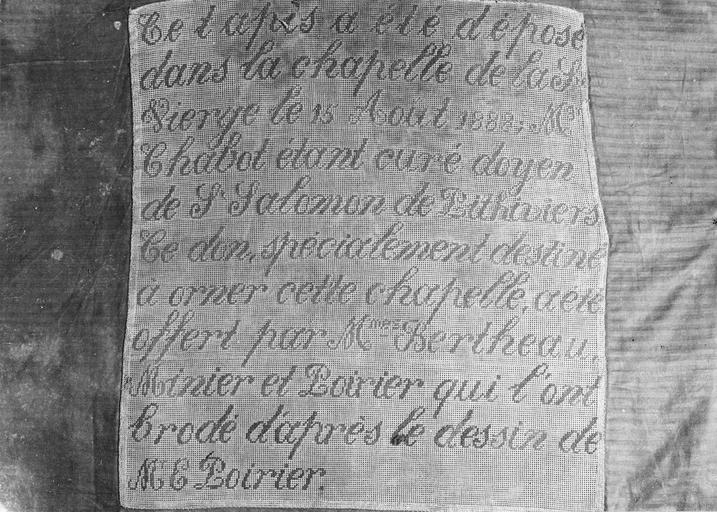 Ce tapis a été déposé
dans la chapelle de la Ste
Vierge le 15 Août 1888, Mr
Chabot étant curé doyen
de St Salomon de Pithiviers
Ce don, spécialement destiné
à orner cette chapelle, a été
offert par Mmes Bertheau,
Minier et Poirier qui l'ont
brodé d'après le dessin de
Mr E Poirier.